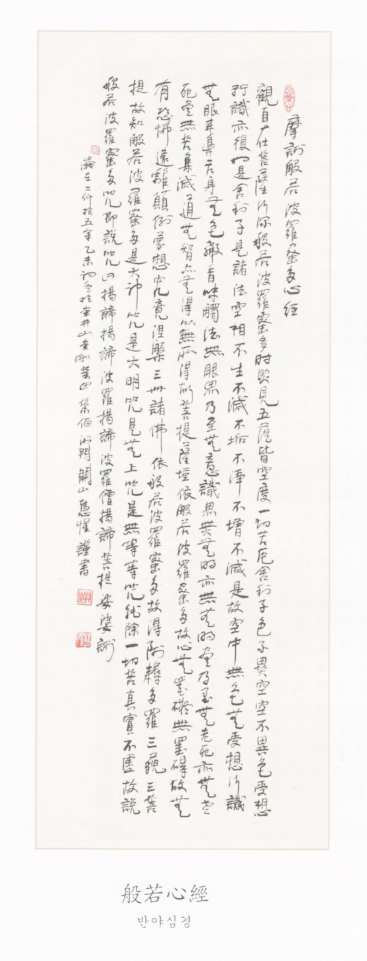 摩訶般若波羅蜜多心經
觀自在菩薩行深般若波羅蜜多時照見五蘊皆空度一切苦厄舍利子色不異空空不異色受想
行識亦復如是舍利子是諸法空相不生不滅不垢不淨不增不減是故空中無色無受想行識
無眼耳鼻舌身無色聲香味觸法無眼界乃至無意識界無無明亦無無明盡乃至無老死亦無老
死盡無苦集滅道無智亦無得以無所得故菩提薩埵依般若波羅蜜多故心無罣礙無罣礙故無
有恐怖遠離顛倒夢想究竟涅槃三世諸佛依般若波羅蜜多故得阿耨多羅三藐三菩
提故知般若波羅蜜多是大神呪是大明呪是無上呪是無等等呪能除一切苦真實不虛故說
般若波羅蜜多呪即說呪曰揭諦揭諦波羅揭諦波羅僧揭諦菩提娑婆訶
歲在二仟拾五年乙未初冬於 謹書
般若心經
반야심경